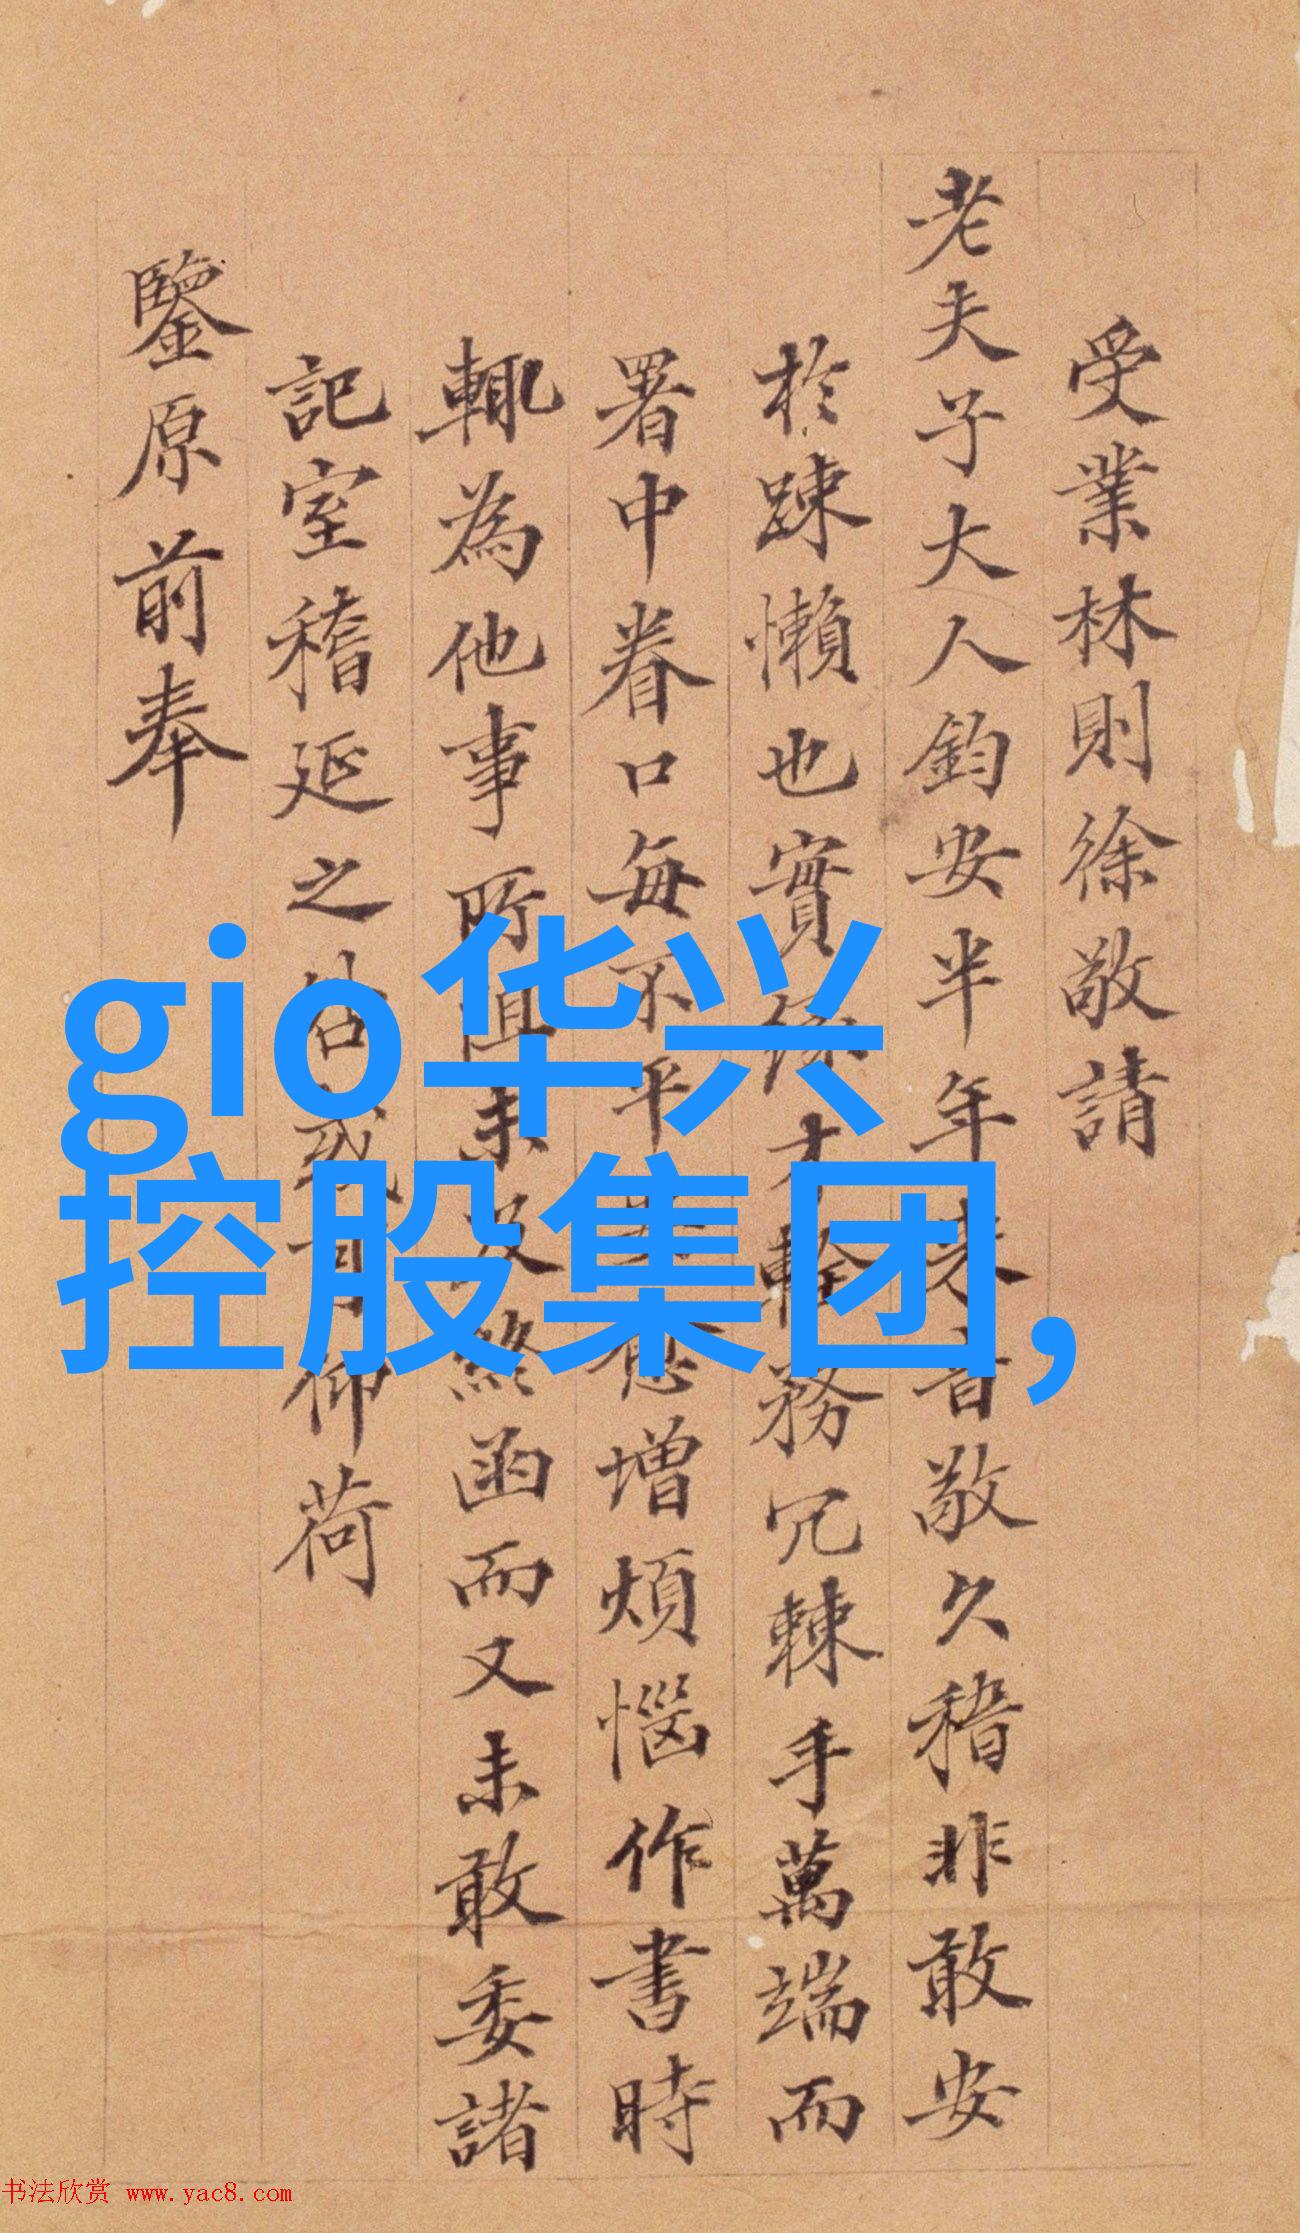 受業林則徐敬請
老夫子大人鈞安半年未音敬久稽非敢安
於踈懶也實係才輇務冗棘手萬端而
署中眷口每不平增煩惱作書時
輒為他事所阻未及終函而又未敢委諸
記室稽延之仰荷
鑒原前奉
gio华兴
控股集团,
书法欣赏 www.yac8.com